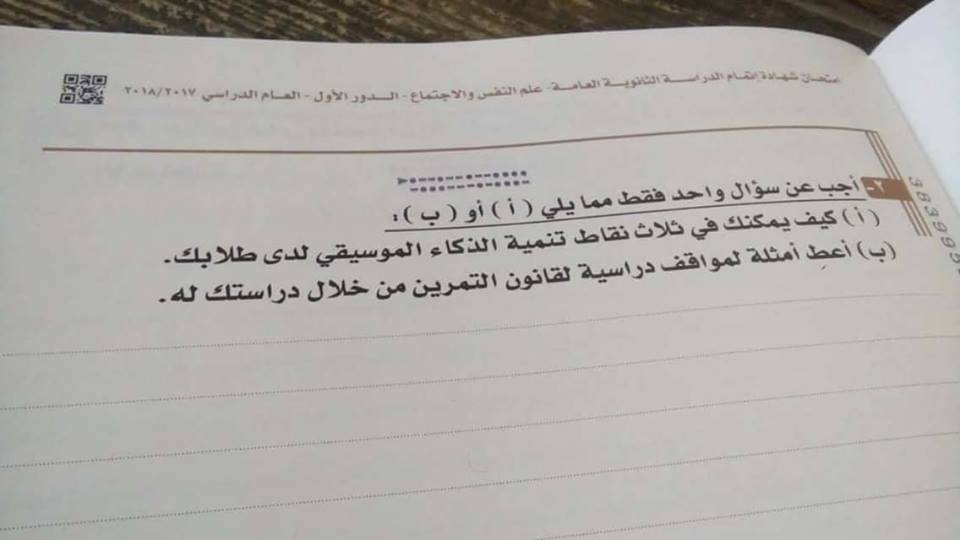 امتحان شهادة إتمام الدراسة الثانوية العامة - علم النفس والاجتماع - الدور الأول - العام الدراسي ٢٠١٨/٢٠١٧
٢- أجب عن سؤال واحد فقط مما يلي ( أ ) أو ( ب ) :
( أ ) كيف يمكنك في ثلاث نقاط تنمية الذكاء الموسيقي لدى طلابك.
(ب) أعطِ أمثلة لمواقف دراسية لقانون التمرين من خلال دراستك له.